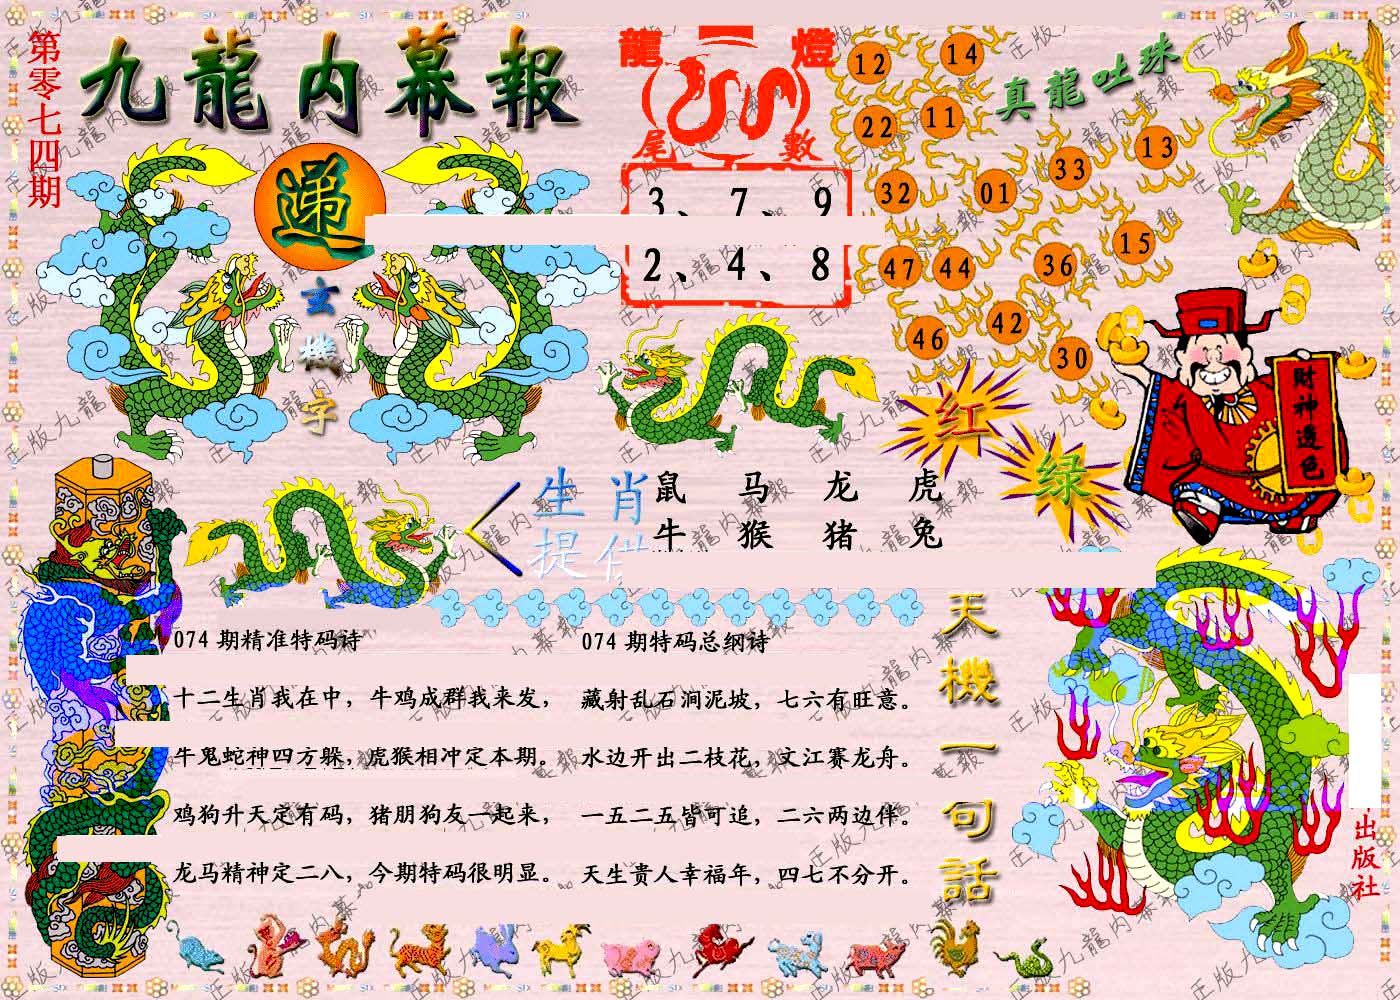 第零七四期
九龍内幕報
龍燈
尾數
3、7、9
2、4、8
真龍吐珠
12 14
22 11
33 13
32 01
47 44 36 15
46 42 30
玄機字
红
绿
財神透色
生肖
提供
鼠 马 龙 虎
牛 猴 猪 兔
074 期精准特码诗
十二生肖我在中，牛鸡成群我来发，
牛鬼蛇神四方躲，虎猴相冲定本期。
鸡狗升天定有码，猪朋狗友一起来，
龙马精神定二八，今期特码很明显。
074 期特码总纲诗
藏射乱石涧泥坡，七六有旺意。
水边开出二枝花，文江赛龙舟。
一五二五皆可追，二六两边伴。
天生贵人幸福年，四七不分开。
天機一句話
出版社
正版九龍内幕報